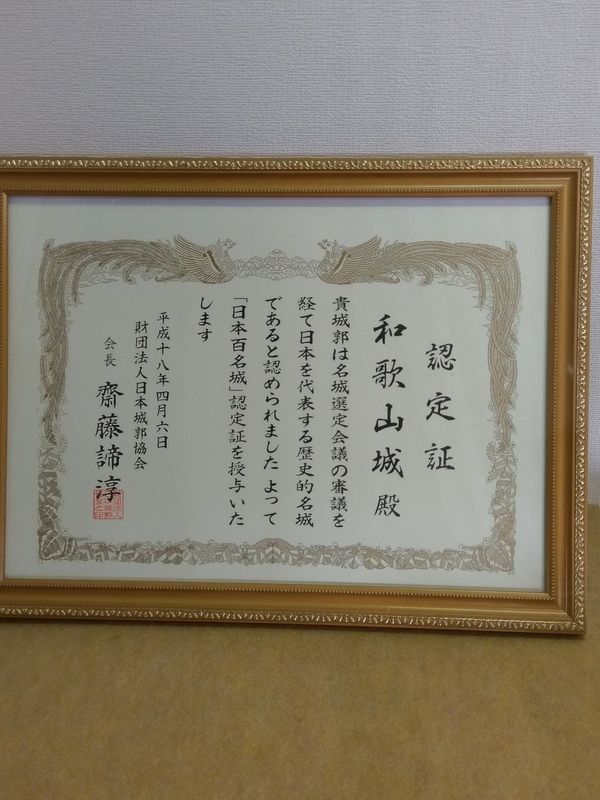 認定証
和歌山城殿
貴城郭は名城選定会議の審議を
経て日本を代表する歴史的名城
であると認められました よって
「日本百名城」認定証を授与いた
します
平成十八年四月六日
財団法人日本城郭協会
会長 齋藤諦淳